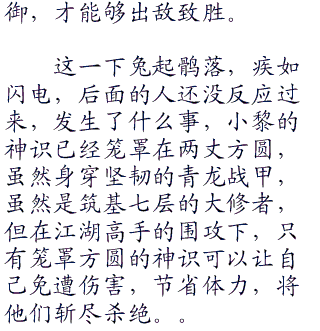 御，才能够出敌致胜。
这一下兔起鹘落，疾如
闪电，后面的人还没反应过
来，发生了什么事，小黎的
神识已经笼罩在两丈方圆，
虽然身穿坚韧的青龙战甲，
虽然是筑基七层的大修者，
但在江湖高手的围攻下，只
有笼罩方圆的神识可以让自
己免遭伤害，节省体力，将
他们斩尽杀绝。。